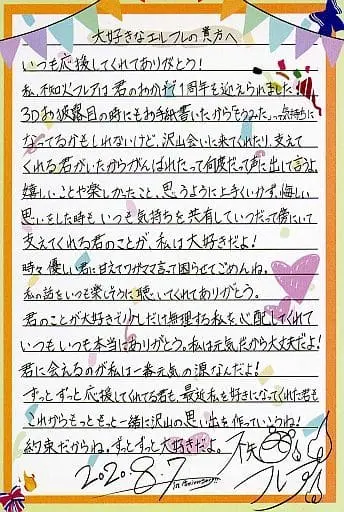 大好きなエルフレの貴方へ
いつも応援してくれてありがとう!
私、不知火フレアは君のおかげで1周年も迎えられました!
3Dお披露目の時にもお手紙書いたからもうみた〜って気持ちに
なってるかもしれないけど、沢山会いに来てくれたり、支えて
くれる君がいたからがんばれたって何度だって声に出して言うよ
嬉しいことや楽しかったこと、思うように上手くいかず、悔しい
思いをした時も、いつも気持ちを共有していつだって傍にいて
支えてくれる君のことが、私は大好きだよ!
時々優しい君に甘えてワガママ言って困らせてごめんね。
私の話をいつも楽しそうに聴いてくれてありがとう。
君のことが大好きで少しだけ無理する私を心配してくれて
いつもいつも本当にありがとう。私は元気だから大丈夫だよ!
君に会えるのが私は一番元気の源なんだよ!
ずっとずっと応援してくれてる君も、最近私を好きになってくれた君も
これからもっともっと一緒に沢山の思い出を作っていこうね!
約束だからね。ずっとずっと大好きだよ。
2020.8.7
1st Anniversary!!
不知火
フレア